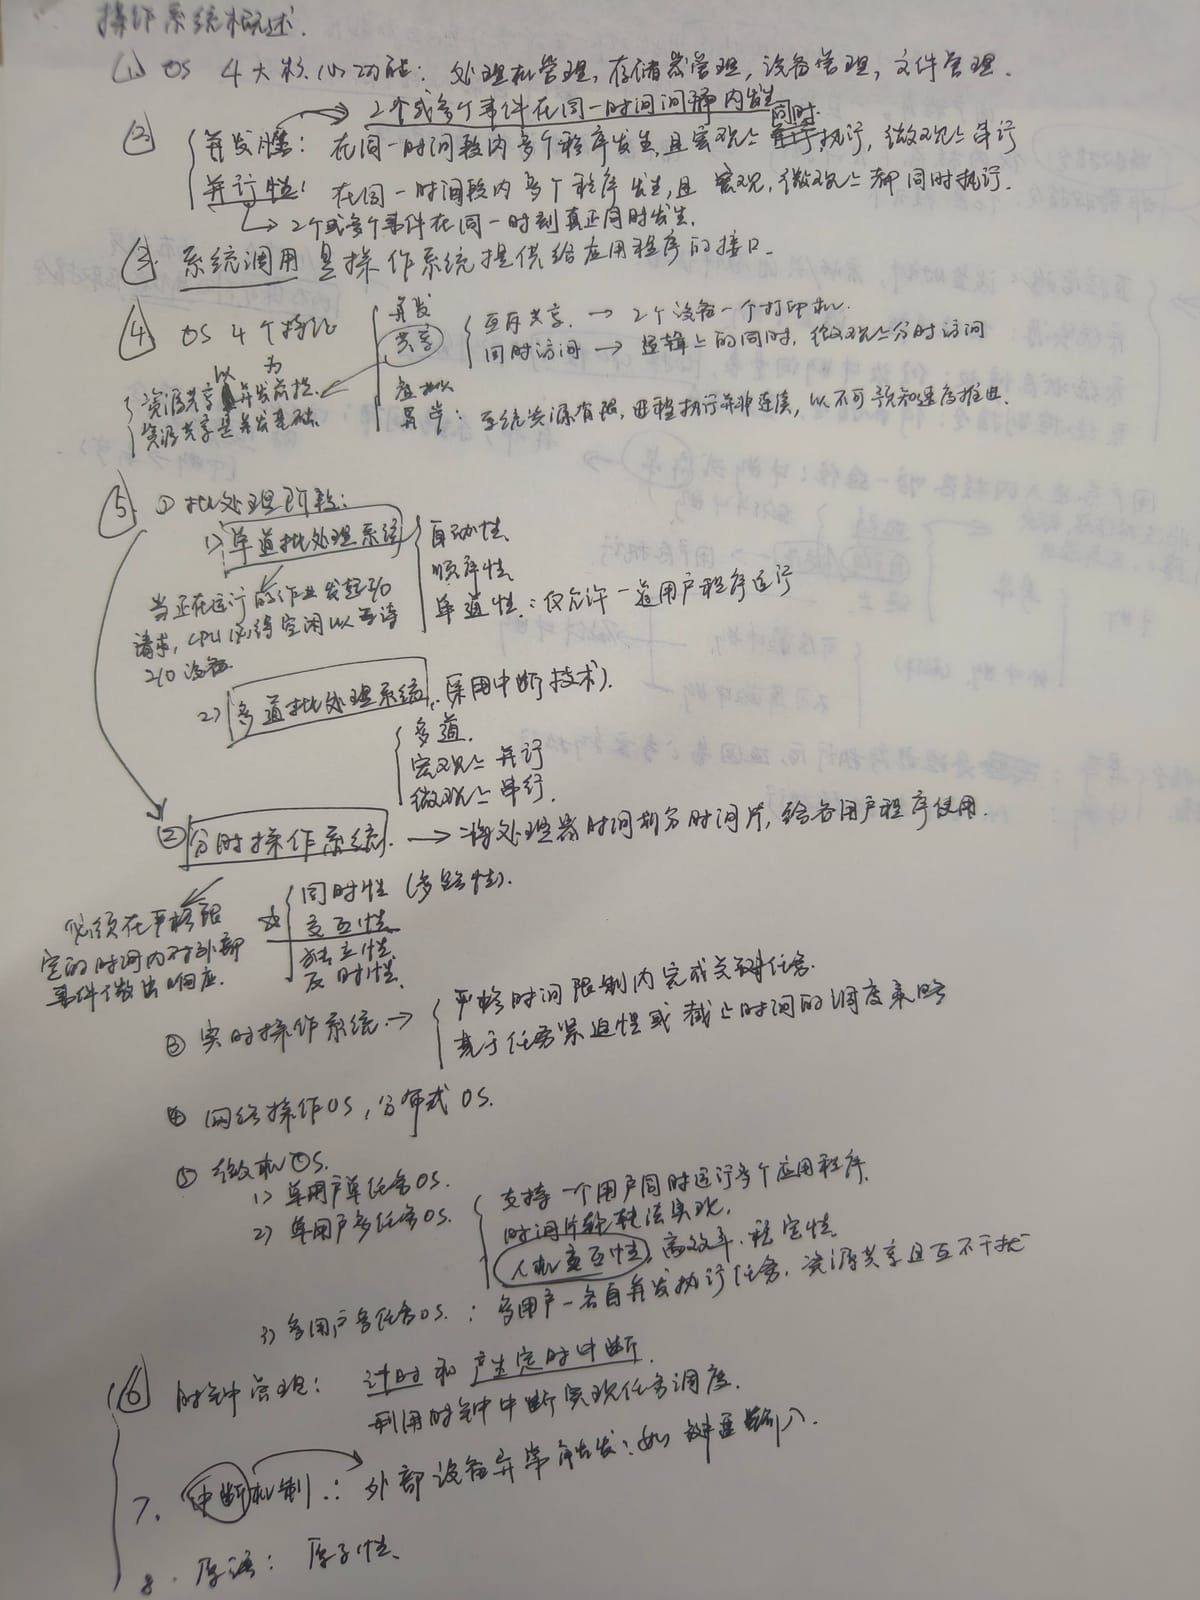 操作系统概述.
(1) OS 4大核心功能: 处理机管理, 存储器管理, 设备管理, 文件管理.
→ 2个或多个事件在同一时间间隔内发生
② 并发性: 在同一时间段内多个程序发生,且宏观上同时执行, 微观上串行
并行性: 在同一时间段内多个程序发生,且宏观,微观上都同时执行.
↳ 2个或多个事件在同一时刻真正同时发生.
③. 系统调用是操作系统提供给应用程序的接口.
④ OS 4个特征
并发
共享
互斥共享. → 2个设备一个打印机.
同时访问 → 逻辑上的同时, 微观上分时访问
虚拟
异步: 系统资源有限, 进程执行并非连续, 以不可预知速度推进.
资源共享以并发为前提.
资源共享是并发基础.
⑤ ① 批处理阶段:
1) 单道批处理系统
自动性
顺序性
单道性: 仅允许一道用户程序运行
当正在运行的作业发起I/O
请求, CPU必须空闲以等待
I/O设备.
2) 多道批处理系统 (采用中断技术).
多道.
宏观上并行
微观上串行.
② 分时操作系统. → 将处理器时间划分时间片, 给各用户程序使用.
同时性 (多路性).
☆ 交互性
独立性
及时性.
必须在严格限
定的时间内对外部
事件做出响应.
③ 实时操作系统. →
严格时间限制内完成关键任务.
基于任务紧迫性或截止时间的调度策略
④ 网络操作OS, 分布式OS.
⑤ 微机OS.
1) 单用户单任务OS.
2) 单用户多任务OS.
支持一个用户同时运行多个应用程序.
时间片轮转法实现.
人机交互性, 高效率, 稳定性
3) 多用户多任务OS. : 多用户一各自并发执行任务, 资源共享且互不干扰
⑥ 时钟管理: 计时和产生定时中断.
利用时钟中断实现任务调度.
7. 中断机制.: 外部设备异常触发: 如键盘输入.
8. 原语: 原子性.